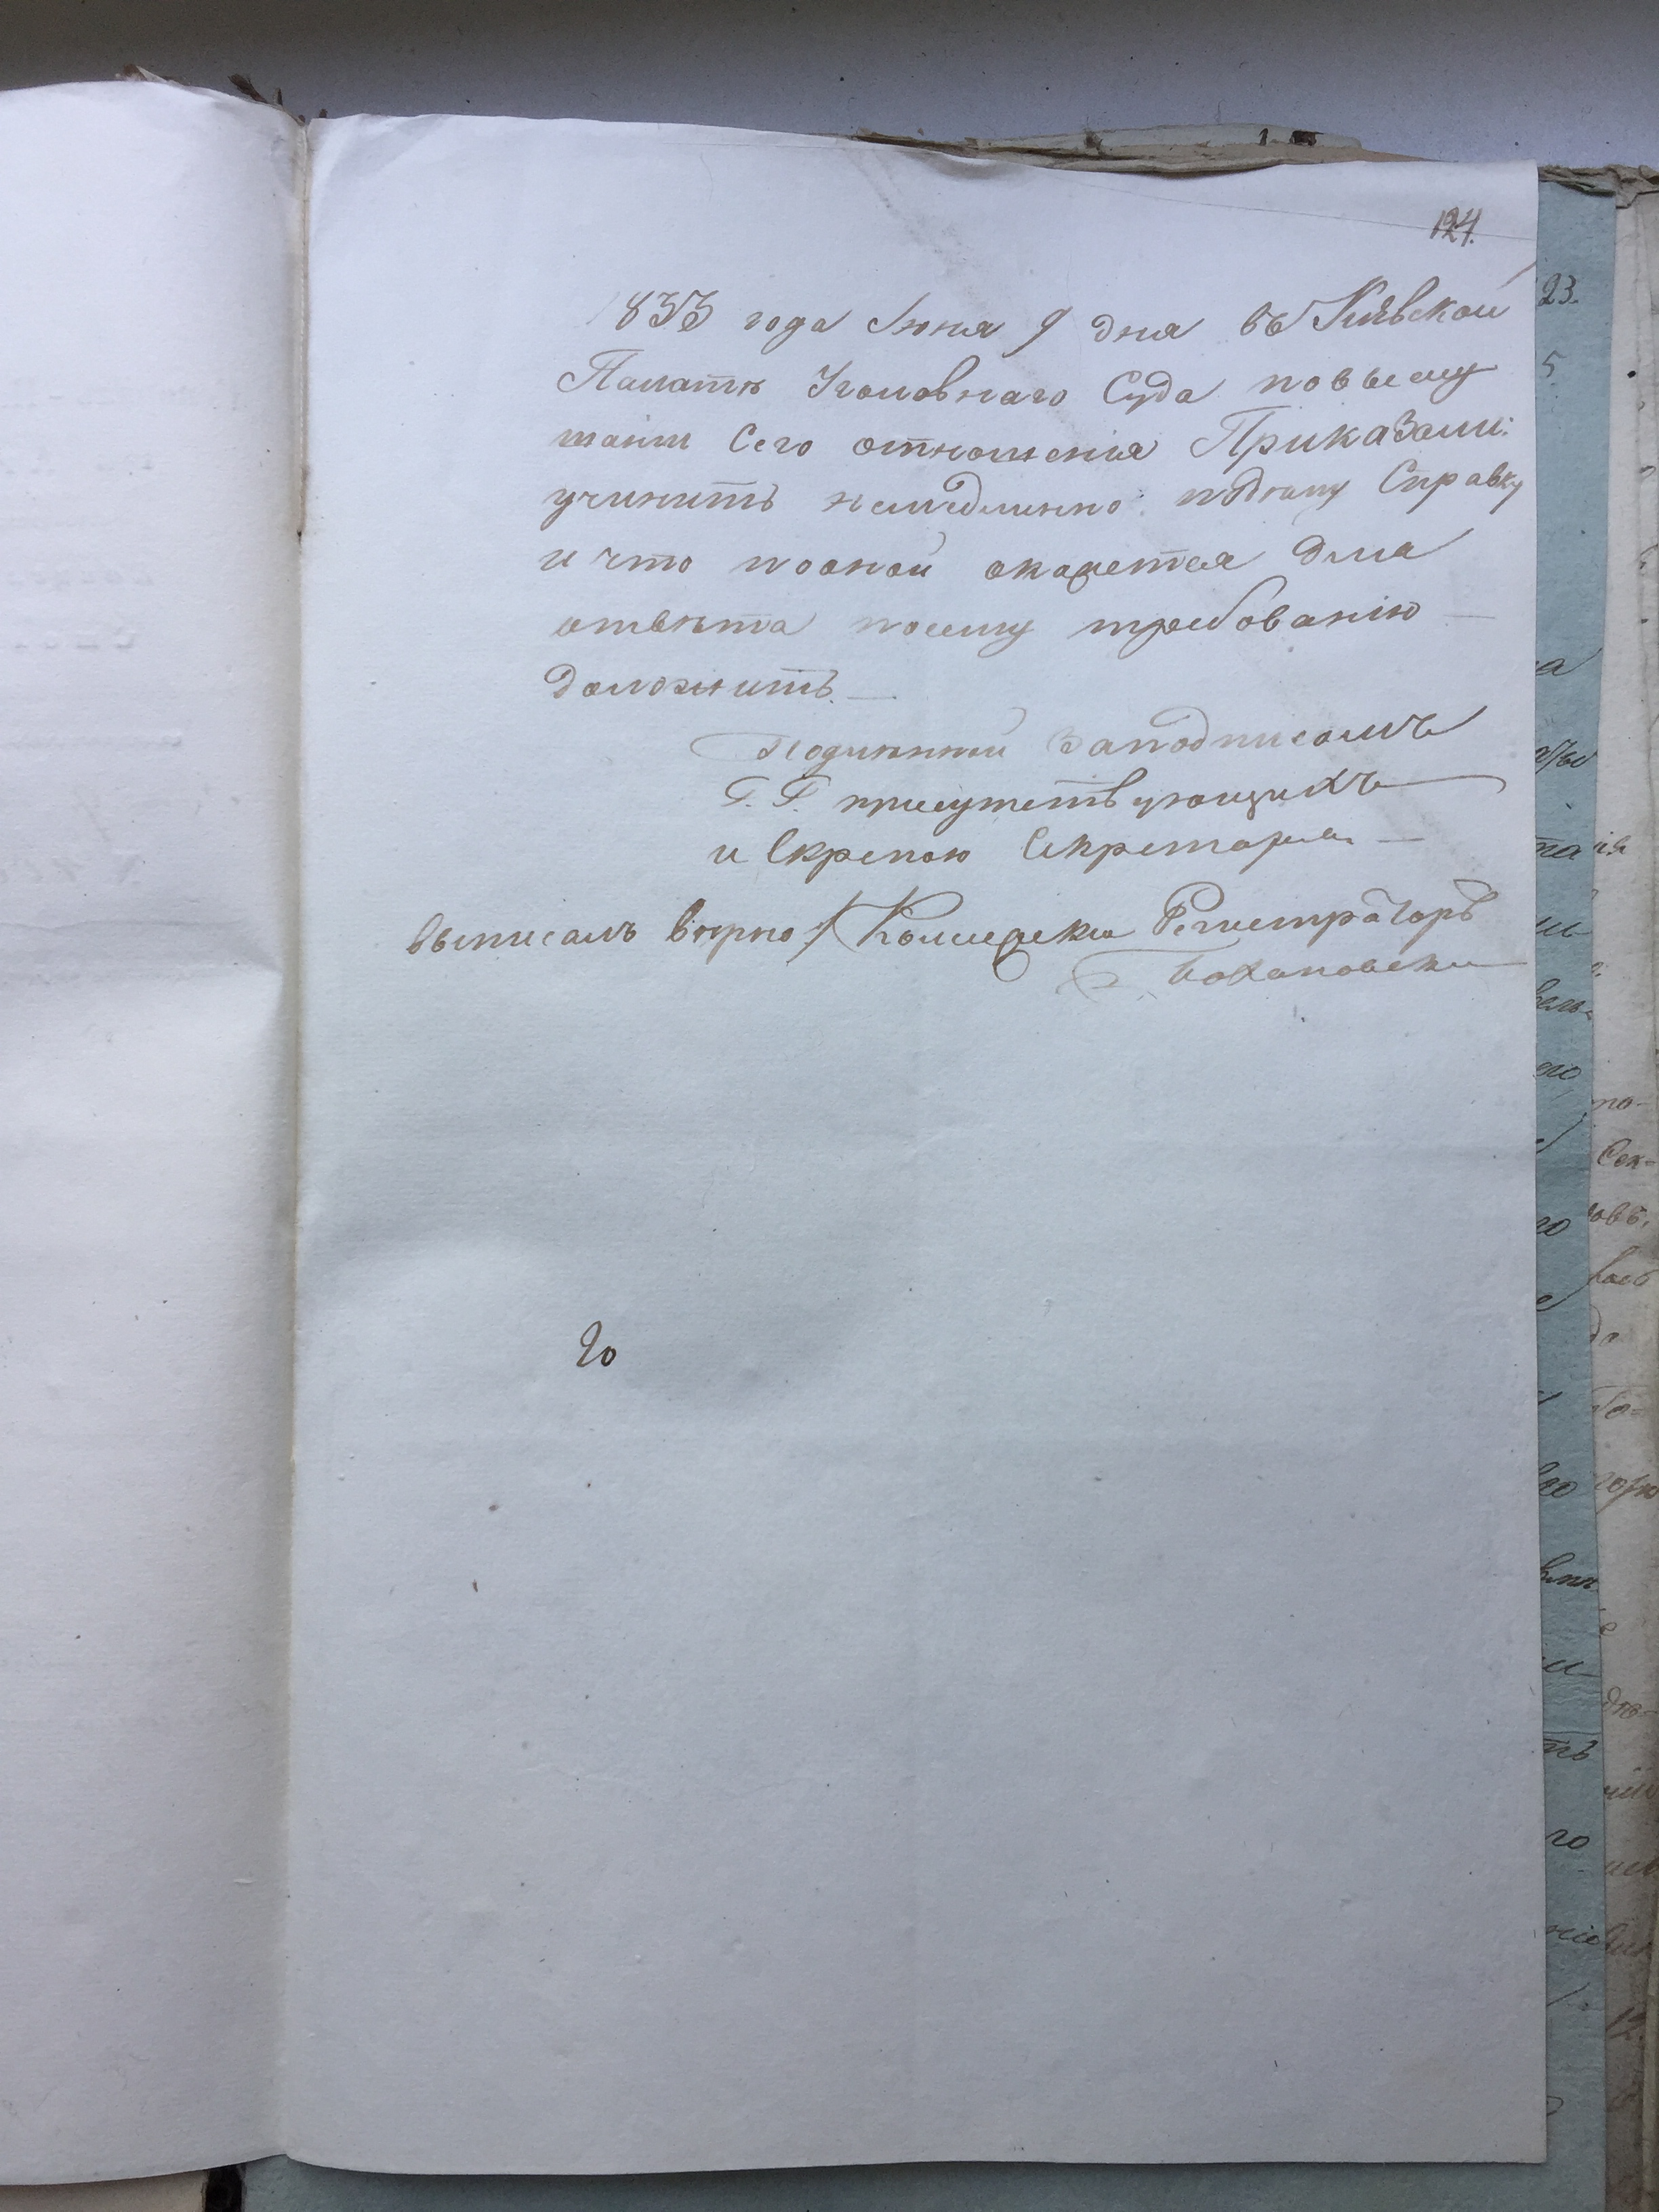 124.
1833 года Іюня 9 дня въ Кіевской
Палатѣ Уголовнаго Суда по выслу
шаніи Сего отношенія Приказали:
учинить немедленно подому Справку
и что по оной окажется для
отвѣта по сему требованію —
доложить. —
Подлинной за подписомъ
Г. Г. присутствующихъ
и Скрепою Секретаря —
выписалъ вѣрно / Коллежски Регистраторъ
20